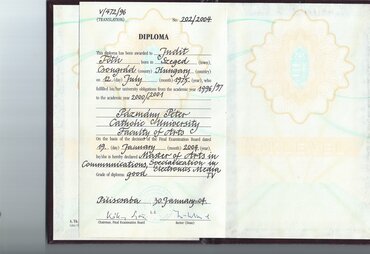 V/472/96
(TRANSLATION) No. 202/2004
DIPLOMA
This diploma has been awarded to Judit
Tóth born in Szeged (town),
Csongrád (county) Hungary (country)
on 12. (day) July (month) 1975. (year) who
fulfilled his/her university obligations from the academic year 1996/97
to the academic year 2000/2001
Pázmány Péter
Catholic University
Faculty of Arts
On the basis of the decision of the Final Examination Board dated
19. (day) January (month) 2004. (year)
he/she is hereby declared Master of Arts in
Communications, Specialization in
Electronic Media,
Grade of diploma: good TV
Piliscsaba 30. January 04.
Chairman, Final Examination Board Rector (Dean)